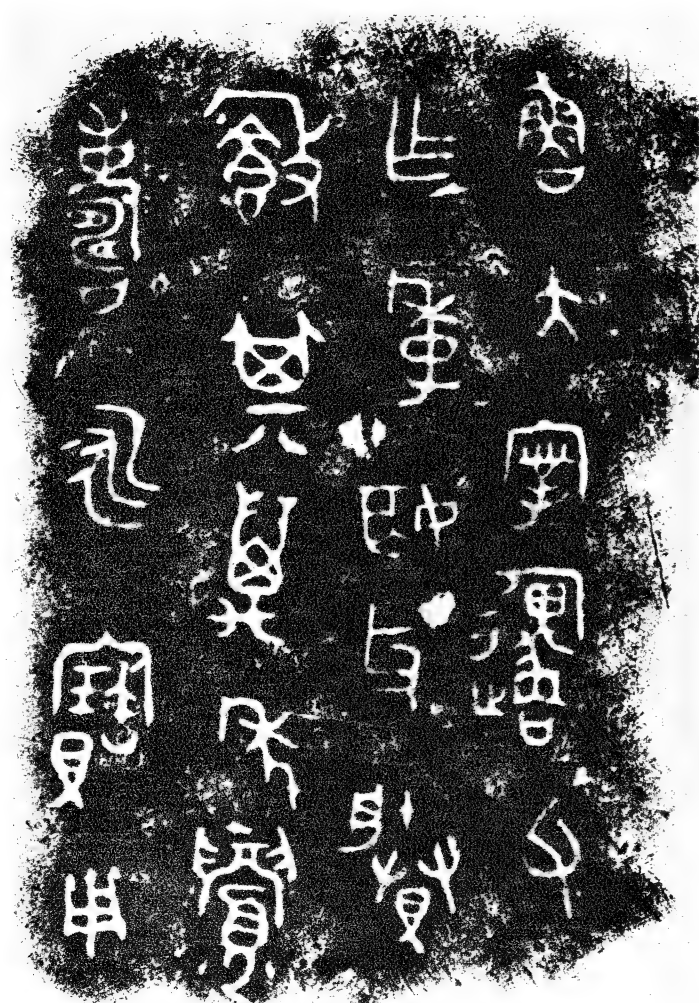 魯大宰邍父
乍季姬牙賸
𣪘其萬年眉
壽永寶用